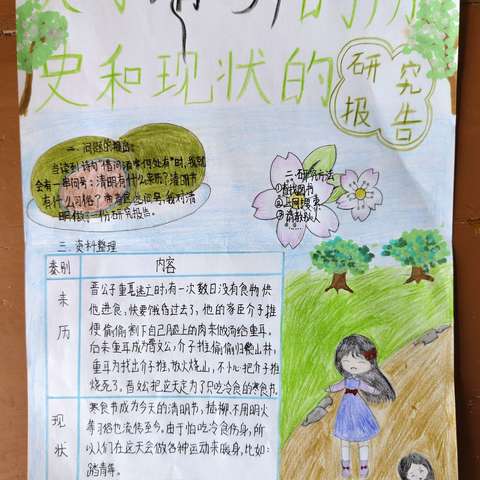 关于清明节的历
史和现状的
研究
报告
一、问题的提出
当读到诗句"借问酒家何处有"时,我就
会有一串问号:清明有什么来历?清明节
有什么习俗?带着这些问号,我对清
明做了一份研究报告。
二、研究方法
①查找图书
②上网搜索
③请教别人
三、资料整理
类别
内容
来历
晋公子重耳逃亡时,有一次数日没有食物供
他进食,快要饿昏过去了,他的家臣介子推
便偷偷割下自己腿上的肉来做汤给重耳,
后来重耳成为晋文公,介子推偷偷归隐山林,
重耳为找出介子推,放火烧山,不小心把介子推
烧死了,晋文公把这天定为了只吃冷食的寒食节。
现状
寒食节成为今天的清明节,插柳、不用明火
等习俗也流传至今。由于怕吃冷食伤身,所
以人们在这天会做各种运动来暖身,比如:
踏青等。